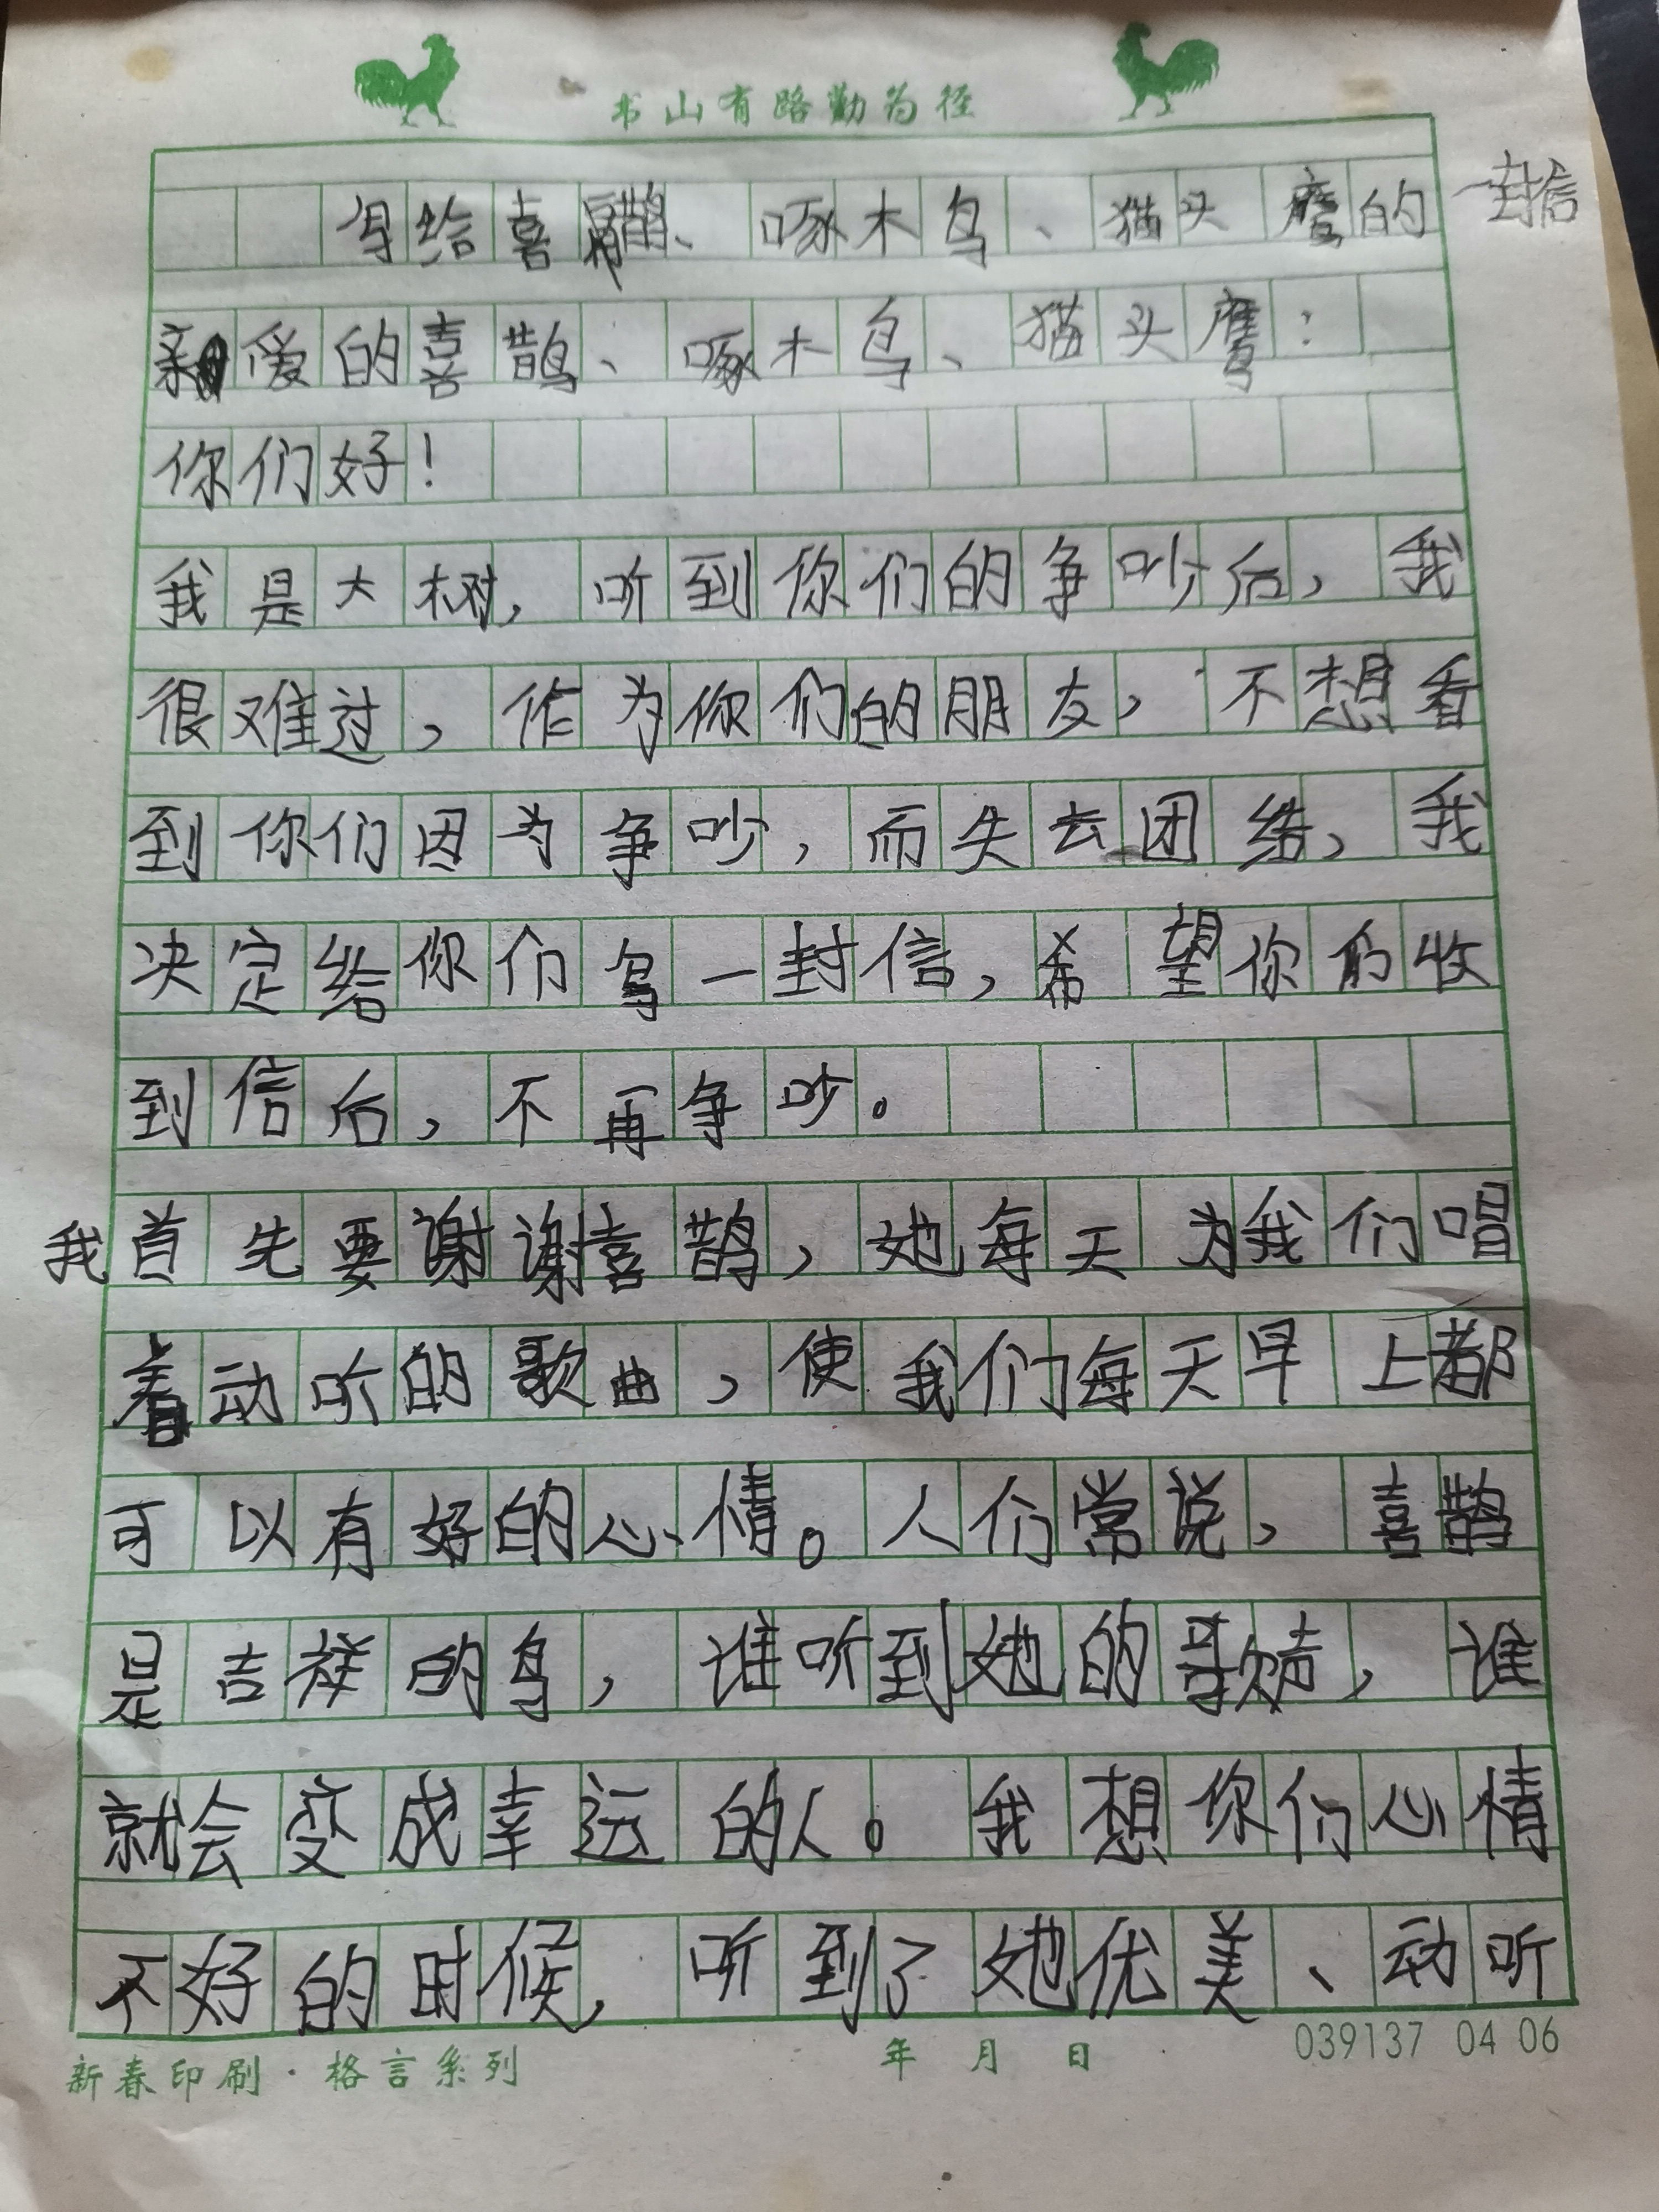 书山有路勤为径
写给喜鹊、啄木鸟、猫头鹰的一封信
亲爱的喜鹊、啄木鸟、猫头鹰：
你们好！
我是大树，听到你们的争吵后，我
很难过，作为你们的朋友，不想看
到你们因为争吵，而失去团结，我
决定给你们写一封信，希望你们收
到信后，不再争吵。
我首先要谢谢喜鹊，她每天为我们唱
着动听的歌曲，使我们每天早上都
可以有好的心情。人们常说，喜鹊
是吉祥的鸟，谁听到她的歌声，谁
就会变成幸运的人。我想你们心情
不好的时候，听到了她优美、动听
新春印刷·格言系列 年 月 日 039137 04 06